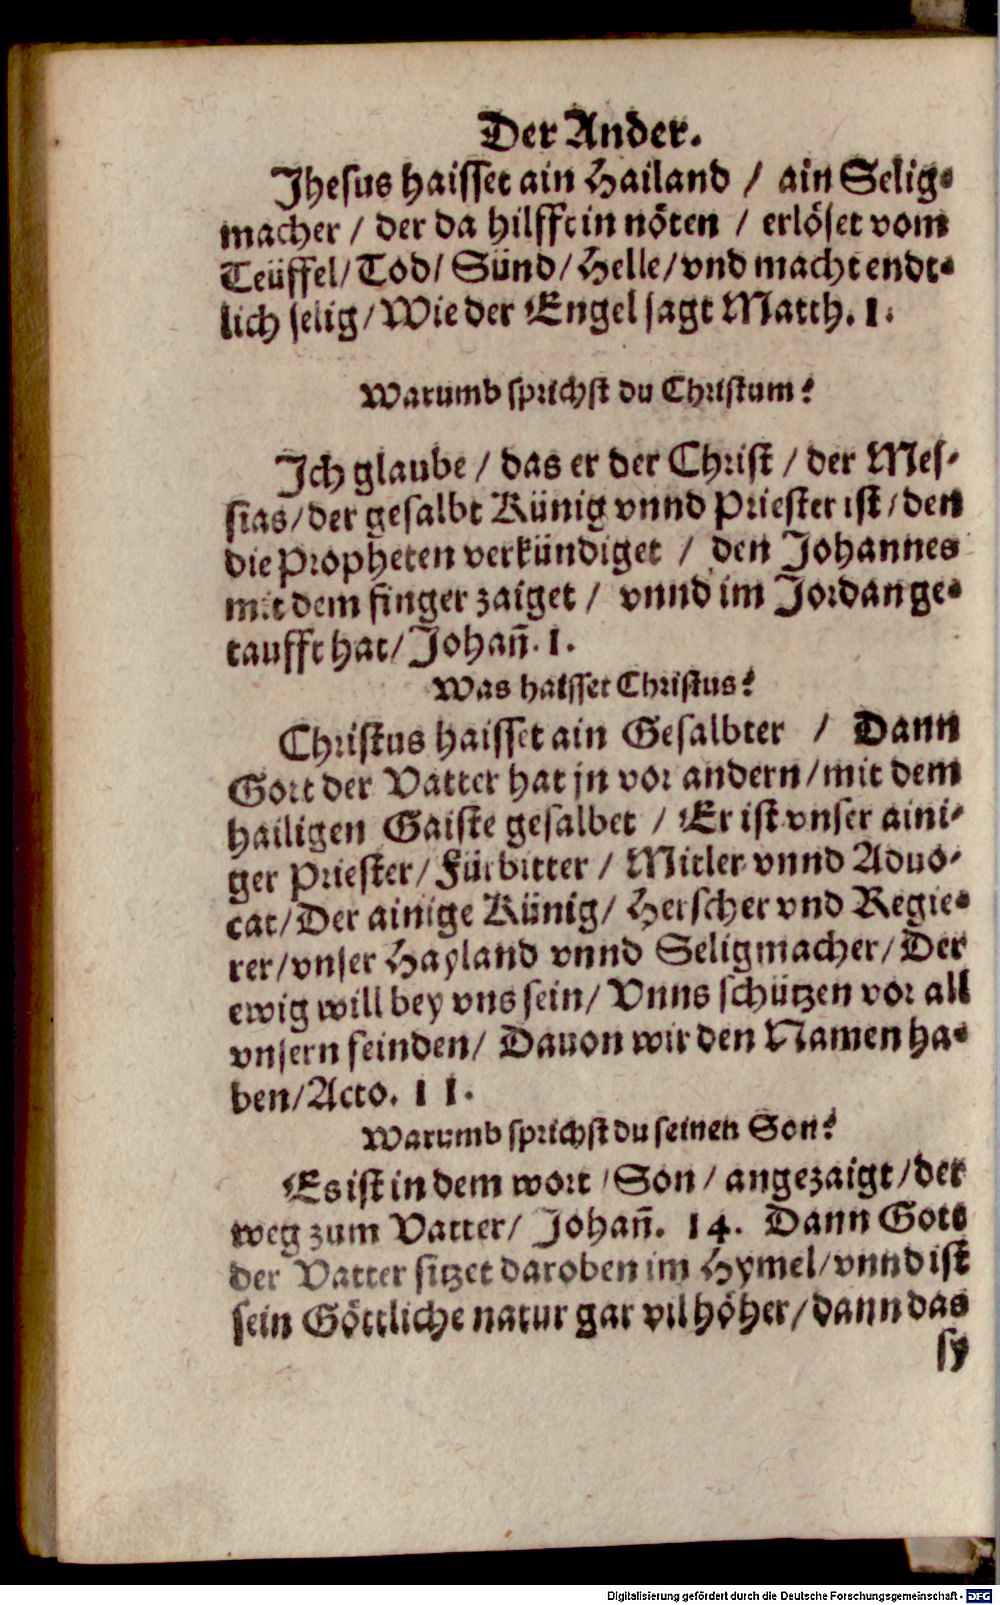 Der Ander.
Jhesus haisset ain Hailand / ain Selig⸗
macher / der da hilfft in nöten / erlöset vom
Teüffel / Tod / Sünd / Helle / vnd macht endt⸗
lich selig / Wie der Engel sagt Matth. 1.
Warumb sprichst du Christum?
Jch glaube / das er der Christ / der Mes⸗
sias / der gesalbt Künig vnnd Priester ist / den
die Propheten verkündiget / den Johannes
mit dem finger zaiget / vnnd im Jordan ge⸗
taufft hat / Johañ. 1.
Was haisset Christus?
Christus haisset ain Gesalbter / Dann
Gott der Vatter hat jn vor andern / mit dem
hailigen Gaiste gesalbet / Er ist vnser aini⸗
ger Priester / Fürbitter / Mitler vnnd Aduo⸗
cat / Der ainige Künig / Herscher vnd Regie⸗
rer / vnser Hayland vnnd Seligmacher / Der
ewig will bey vns sein / Vnns schützen vor all
vnsern feinden / Dauon wir den Namen ha⸗
ben / Acto. 11.
Warumb sprichst du seinen Son?
Es ist in dem wort / Son / angezaigt / der
weg zum Vatter / Johañ. 14. Dann Gott
der Vatter sitzet daroben im Hymel / vnnd ist
sein Göttliche natur gar vil höher / dann das
sy
Digitalisierung gefördert durch die Deutsche Forschungsgemeinschaft - DFG